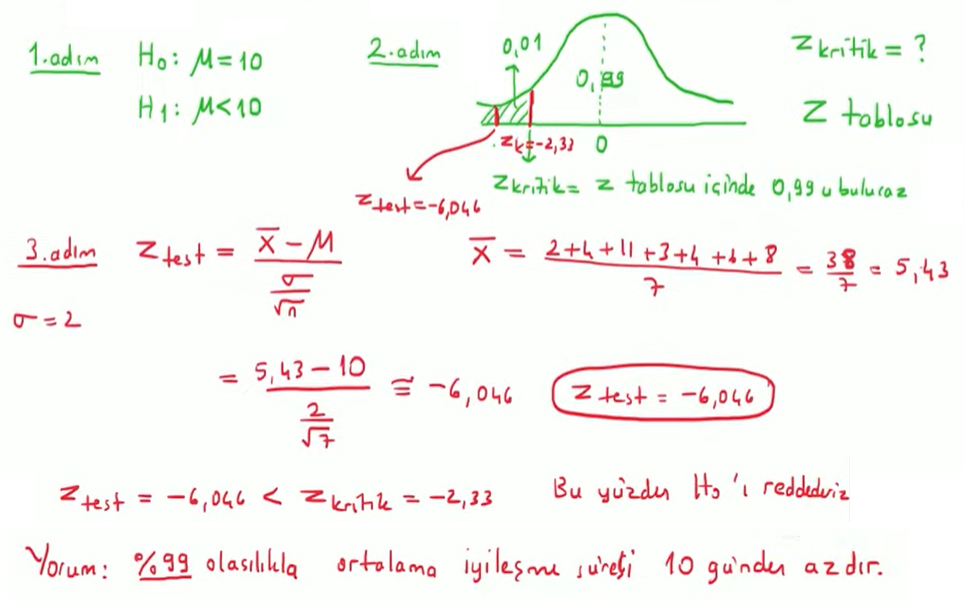 1.adım H₀: μ=10 2.adım 0,01 0,99 Zkritik = ?
H₁: μ<10 Z tablosu
Zk=-2,33 0
Zkritik= z tablosu içinde 0,99 u bulucaz
Ztest=-6,046
3.adım Ztest = (x̄ - μ) / (σ/√n) x̄ = (2+4+11+3+4+ +8) / 7 = 38/7 = 5,43
σ=2
= (5,43 - 10) / (2/√7) ≅ -6,046 Ztest = -6,046
Ztest = -6,046 < Zkritik = -2,33 Bu yüzden H₀'ı reddederiz
Yorum: %99 olasılıkla ortalama iyileşme süresi 10 günden azdır.